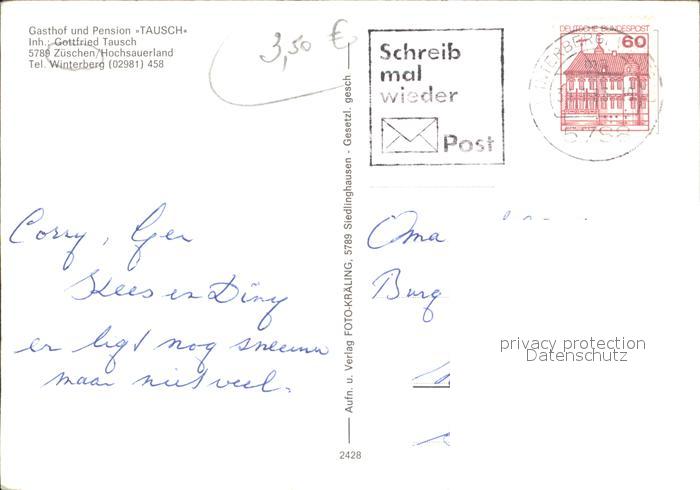 Gasthof und Pension »TAUSCH«
Inh.: Gottfried Tausch
5789 Züschen/Hochsauerland
Tel. Winterberg (02981) 458
3,50 €
Schreib
mal
wieder
Post
DEUTSCHE BUNDESPOST
60
WINTERBERG
5788
Corry, Ger
Kees en Diny
er ligt nog sneeuw
maar niet veel.
Aufn. u. Verlag FOTO-KRÄLING, 5789 Siedlinghausen - Gesetzl. gesch
Oma
Burg
privacy protection
Datenschutz
2428